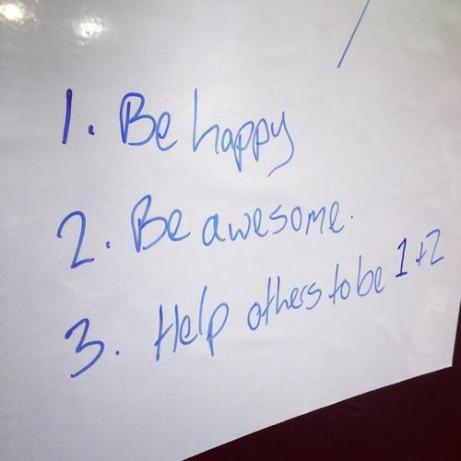 1. Be happy
2. Be awesome.
3. Help others to be 1+2